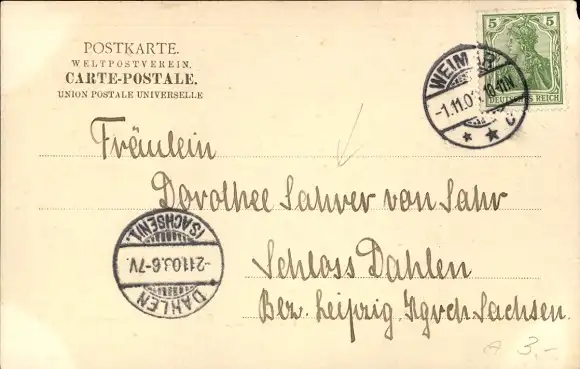 POSTKARTE.
WELTPOSTVEREIN.
CARTE-POSTALE.
UNION POSTALE UNIVERSELLE
5 5
DEUTSCHES REICH
WEIMAR
-1.11.0
10-11V
c
Fräulein
Dorothee Sahrer von Sahr
Schloss Dahlen
Bez. Leipzig Kgrch Sachsen.
DAHLEN
-2.11.03.6-7V.
(SACHSEN)
3.-